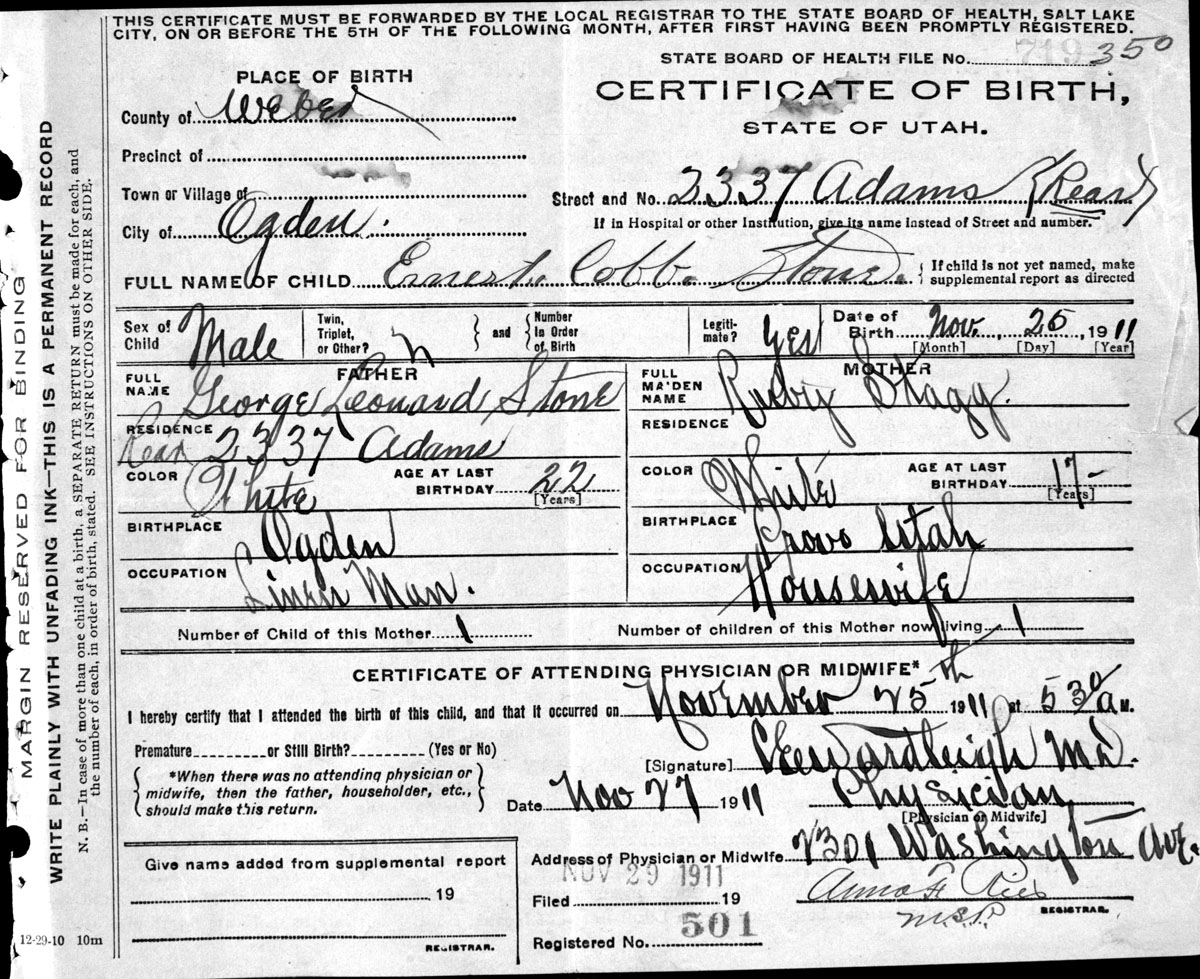 THIS CERTIFICATE MUST BE FORWARDED BY THE LOCAL REGISTRAR TO THE STATE BOARD OF HEALTH, SALT LAKE
CITY, ON OR BEFORE THE 5TH OF THE FOLLOWING MONTH, AFTER FIRST HAVING BEEN PROMPTLY REGISTERED.
STATE BOARD OF HEALTH FILE No. 719 350
PLACE OF BIRTH
CERTIFICATE OF BIRTH,
STATE OF UTAH.
County of Weber
Precinct of
Town or Village of
Street and No. 2337 Adams (Rear)
If in Hospital or other Institution, give its name instead of Street and number.
City of Ogden.
FULL NAME OF CHILD Ernest Cobb Stone. { If child is not yet named, make
supplemental report as directed
Sex of Child Male
Twin, Triplet, or Other? n } and { Number In Order of Birth
Legiti-mate? Yes
Date of Birth Nov. 25, 1911
[Month] [Day] [Year]
FATHER
FULL NAME George Leonard Stone
RESIDENCE Rear 2337 Adams
COLOR White AGE AT LAST BIRTHDAY 22
[Years]
BIRTHPLACE Ogden
OCCUPATION Linen Man.
MOTHER
FULL MAIDEN NAME Ruby Stagg.
RESIDENCE
COLOR White AGE AT LAST BIRTHDAY 17
[Years]
BIRTHPLACE Provo Utah
OCCUPATION Housewife
Number of Child of this Mother 1 Number of children of this Mother now living 1
CERTIFICATE OF ATTENDING PHYSICIAN OR MIDWIFE*
I hereby certify that I attended the birth of this child, and that it occurred on November 25th 1911 at 530 a M.
Premature or Still Birth? (Yes or No)
[Signature] Wardleigh MD.
{ *When there was no attending physician or
midwife, then the father, householder, etc.,
should make this return. }
Date Nov 27 1911 Physician
[Physician or Midwife]
Address of Physician or Midwife 2301 Washington Ave.
Give name added from supplemental report
19
REGISTRAR.
NOV 29 1911
Filed 19
Anna F.
REGISTRAR.
Registered No. 501
12-29-10 10m
MARGIN RESERVED FOR BINDING
WRITE PLAINLY WITH UNFADING INK—THIS IS A PERMANENT RECORD
N. B.—In case of more than one child at a birth, a SEPARATE RETURN must be made for each, and
the number of each, in order of birth, stated. SEE INSTRUCTIONS ON OTHER SIDE.